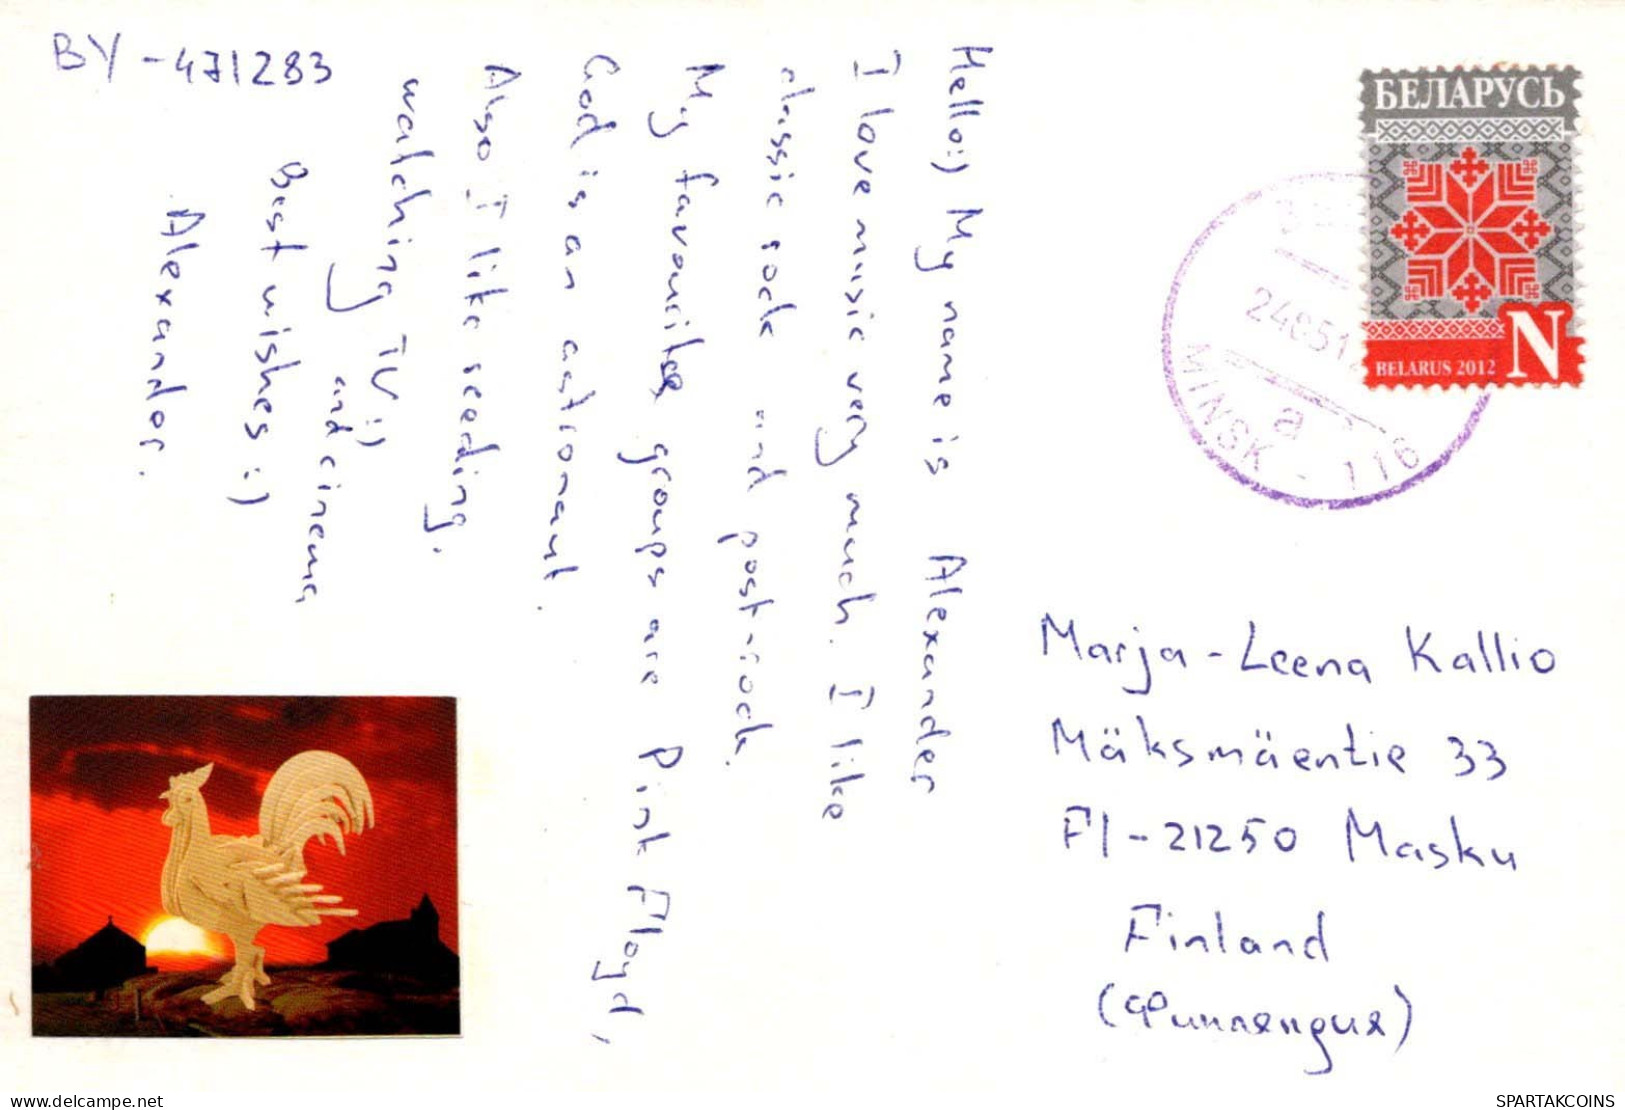 BY-471283
Hello:) My name is Alexander
I love music very much. I like
classic rock and post-rock.
My favourite groups are Pink Floyd,
God is an astronaut.
Also I like reading,
watching TV:)
and cinema
Best wishes :)
Alexander.
БЕЛАРУСЬ
BELARUS 2012 N
MINSK - 116
a
Marja-Leena Kallio
Mäksmäentie 33
FI-21250 Masku
Finland
(Финляндия)
SPARTAKCOINS
delcampe.net